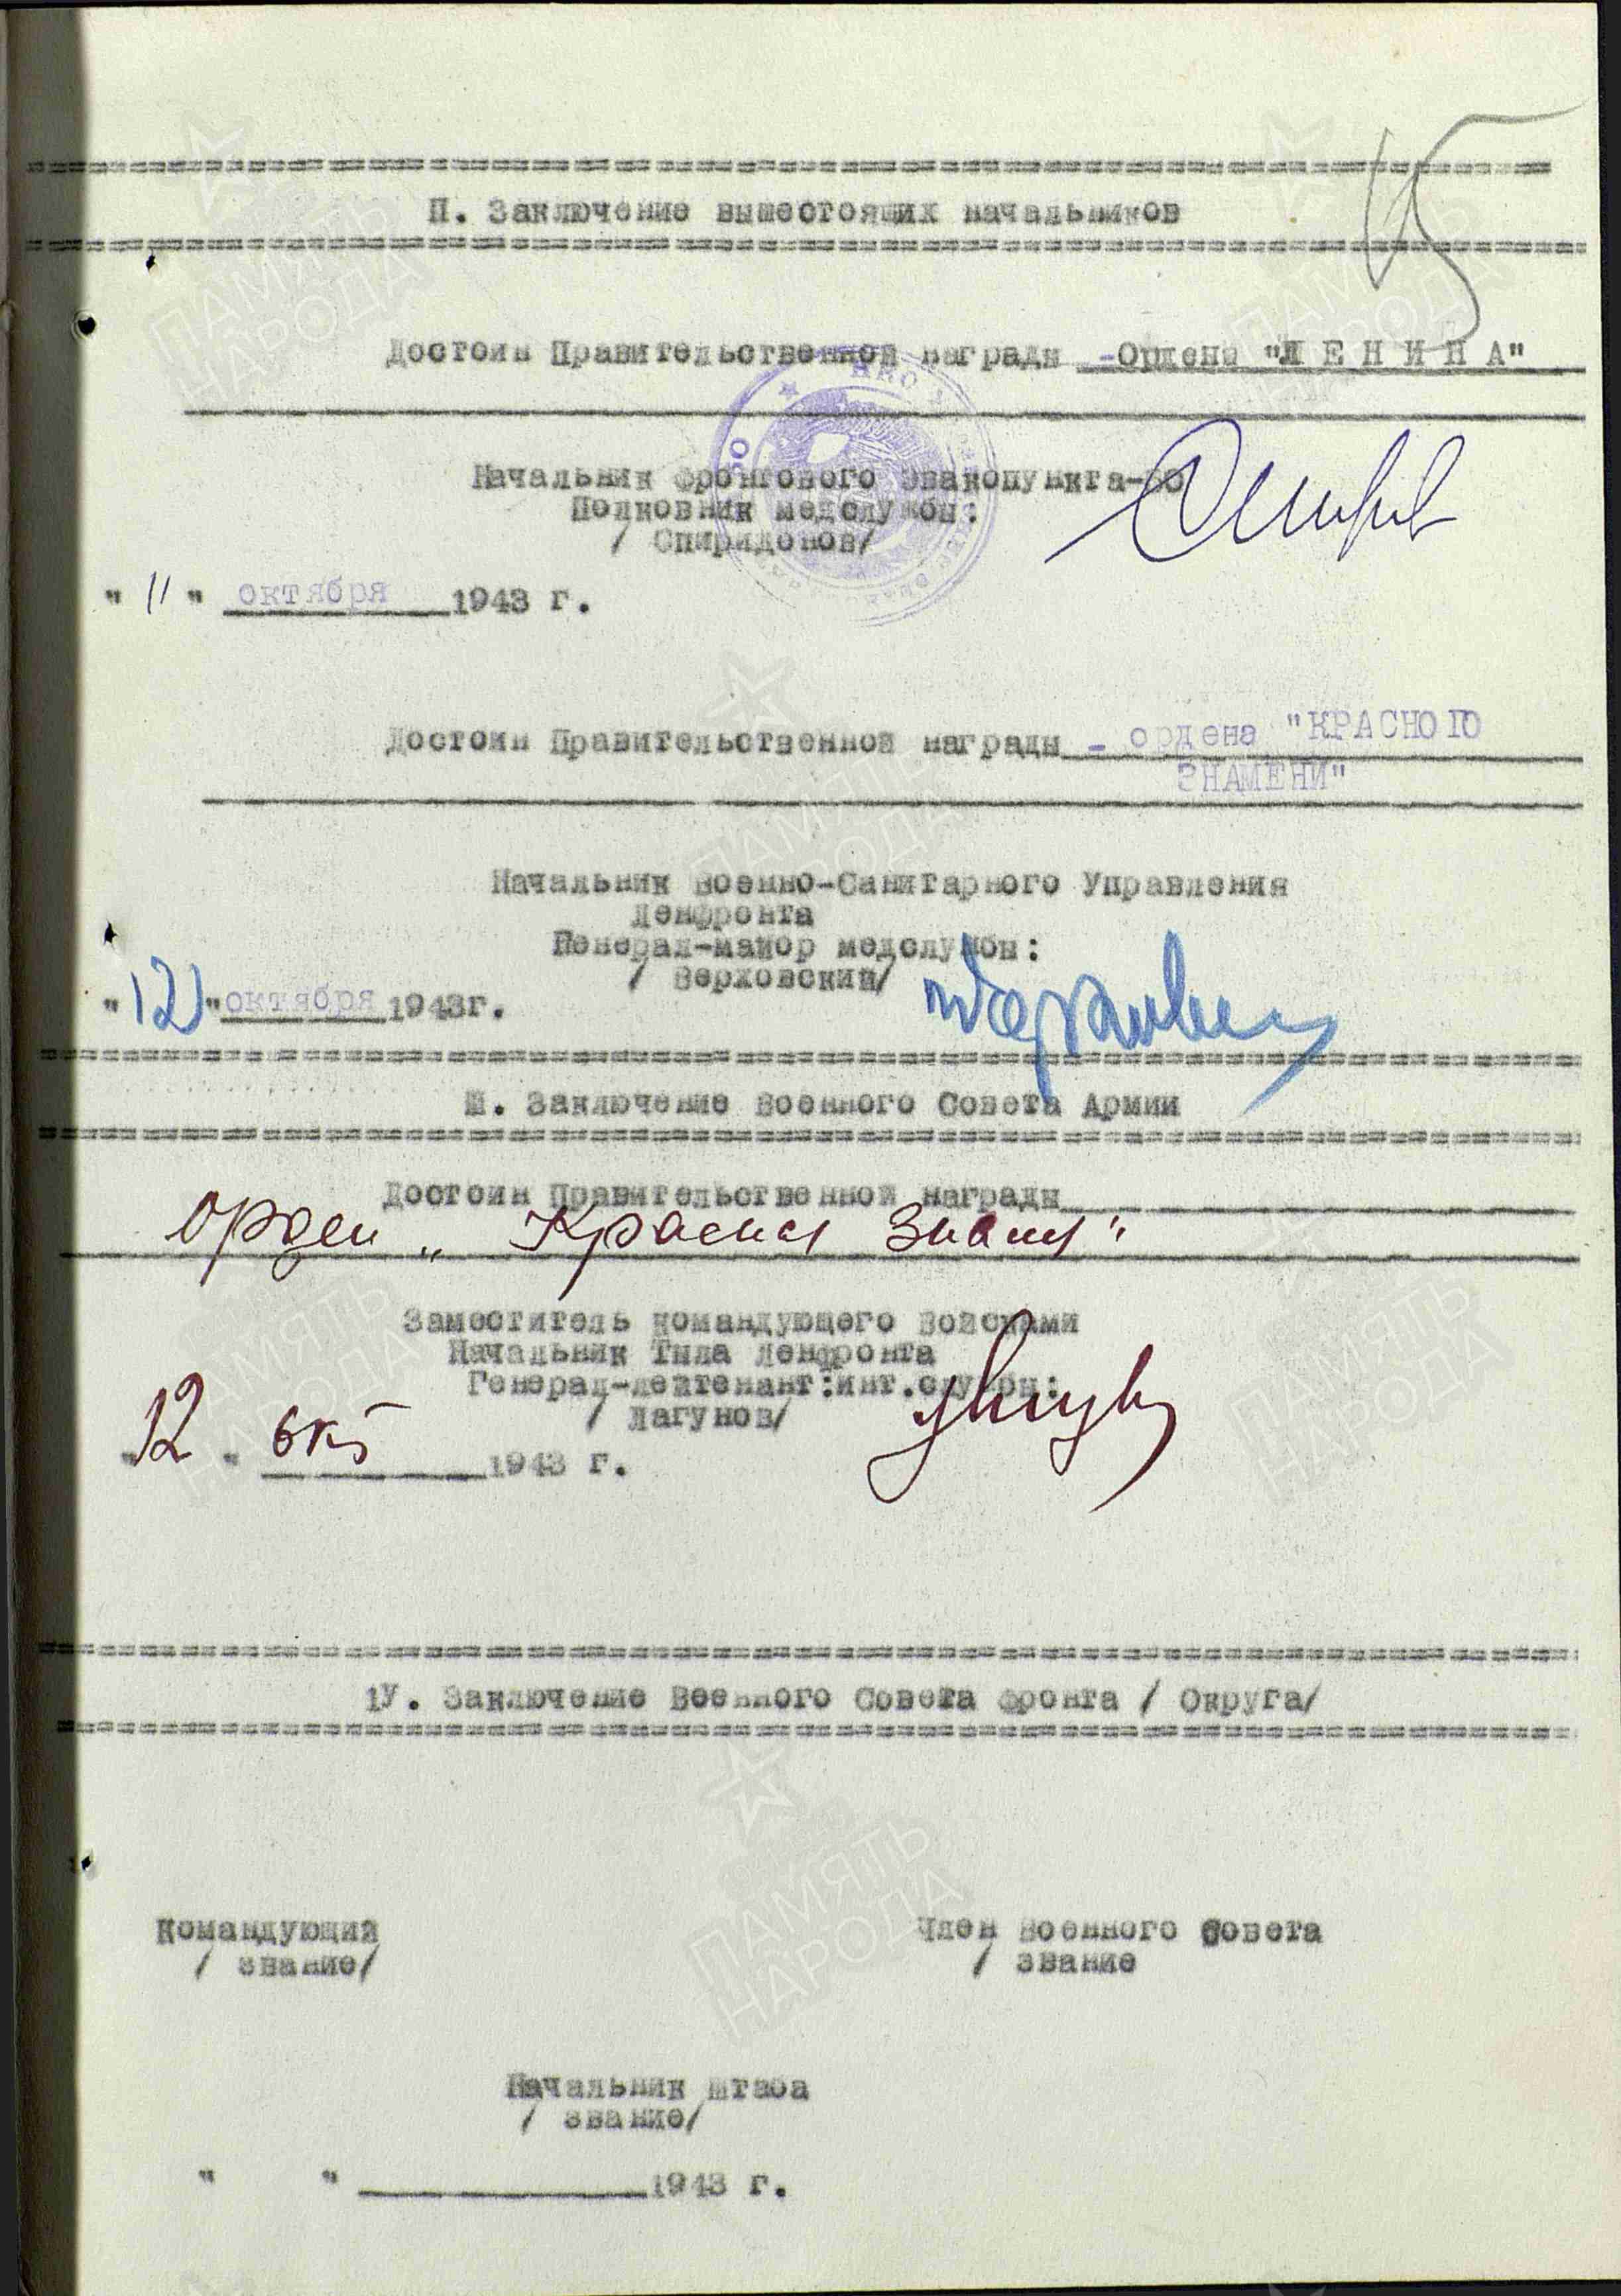 15
П. Заключение вышестоящих начальников
Достоин Правительственной награды -Ордена "Л Е Н И Н А"
Начальник фронтового эвакопункта-50
Полковник медслужбы:
/ Спиридонов/
" 11 " октября 1943 г.
Достоин Правительственной награды - ордена "КРАСНОГО
ЗНАМЕНИ"
Начальник Военно-Санитарного Управления
Ленфронта
Генерал-майор медслужбы:
/ Верховский/
"12" октября 1943г.
Ш. Заключение Военного Совета Армии
Достоин Правительственной награды
Орден "Красное Знамя"
Заместитель командующего Войсками
Начальник Тыла Ленфронта
Генерал-лейтенант:инт.службы:
/ Лагунов/
"12 " окт 1943 г.
1У. Заключение Военного Совета фронта / Округа/
Командующий
/ звание/
Член Военного Совета
/ звание
Начальник Штаба
/ звание/
" " 1943 г.
ПАМЯТЬ
НАРОДА